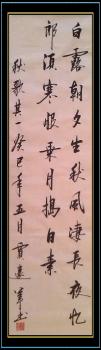 白露朝夕生秋風淒長夜憶
郎須寒服乘月搗白素
秋歌其一癸巳年五月賈連軍书